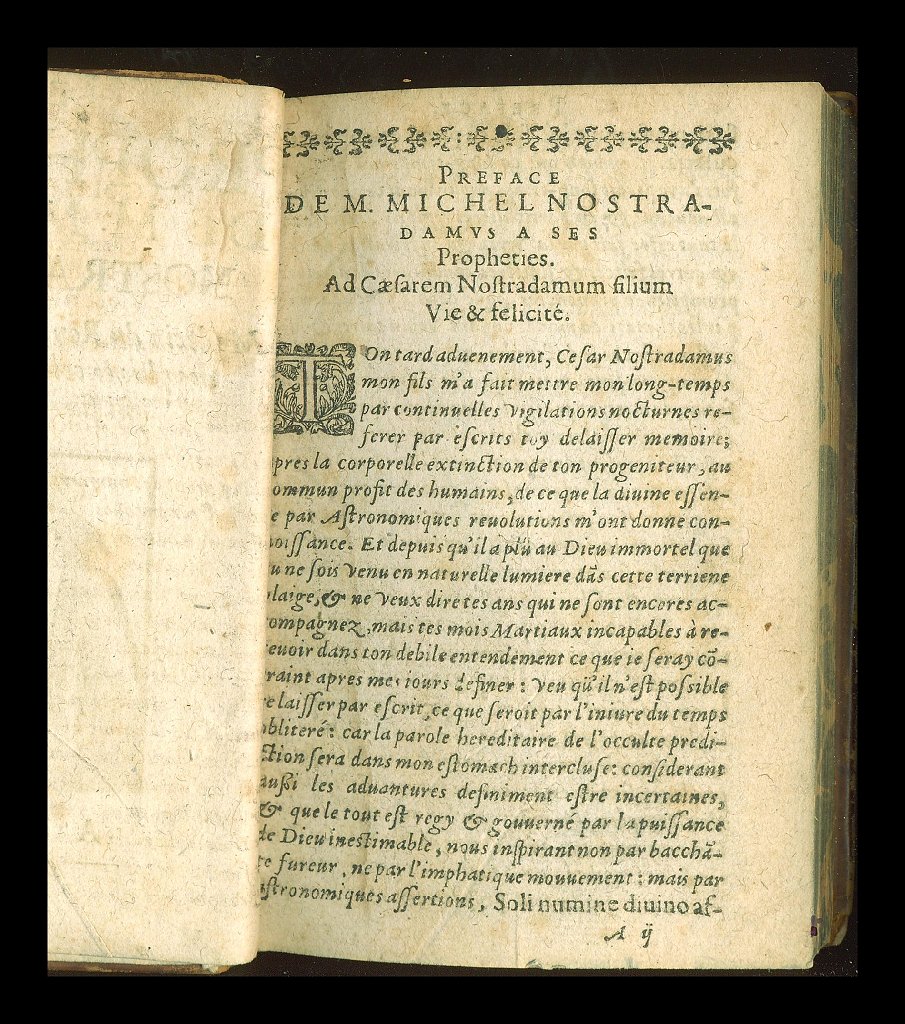 PREFACE
DE M. MICHEL NOSTRA-
DAMVS A SES
Propheties.
Ad Cæsarem Nostradamum filium
Vie & felicité.
TOn tard aduenement, Cesar Nostradamus
mon fils m'a fait mettre mon long-temps
par continuelles vigilations nocturnes re-
ferer par escrits toy delaisser memoire;
pres la corporelle extinction de ton progeniteur, au
ommun profit des humains, de ce que la diuine essen-
e par Astronomiques reuolutions m'ont donne con-
noissance. Et depuis qu'il a plu au Dieu immortel que
u ne sois venu en naturelle lumiere dãs cette terriene
laige, & ne veux dire tes ans qui ne sont encores ac-
ompagnez, mais tes mois Martiaux incapables à re-
euoir dans ton debile entendement ce que ie seray cõ-
raint apres mes iours definer : veu qu'il n'est possible
e laisser par escrit, ce que seroit par l'iniure du temps
obliteré : car la parole hereditaire de l'occulte predi-
ction sera dans mon estomach intercluse : considerant
aussi les aduantures definiment estre incertaines,
& que le tout est regy & gouuerné par la puissance
de Dieu inestimable, nous inspirant non par bacchã-
te fureur, ne par l'imphatique mouuement : mais par
astronomiques assertions, Soli numine diuino af-
A ij